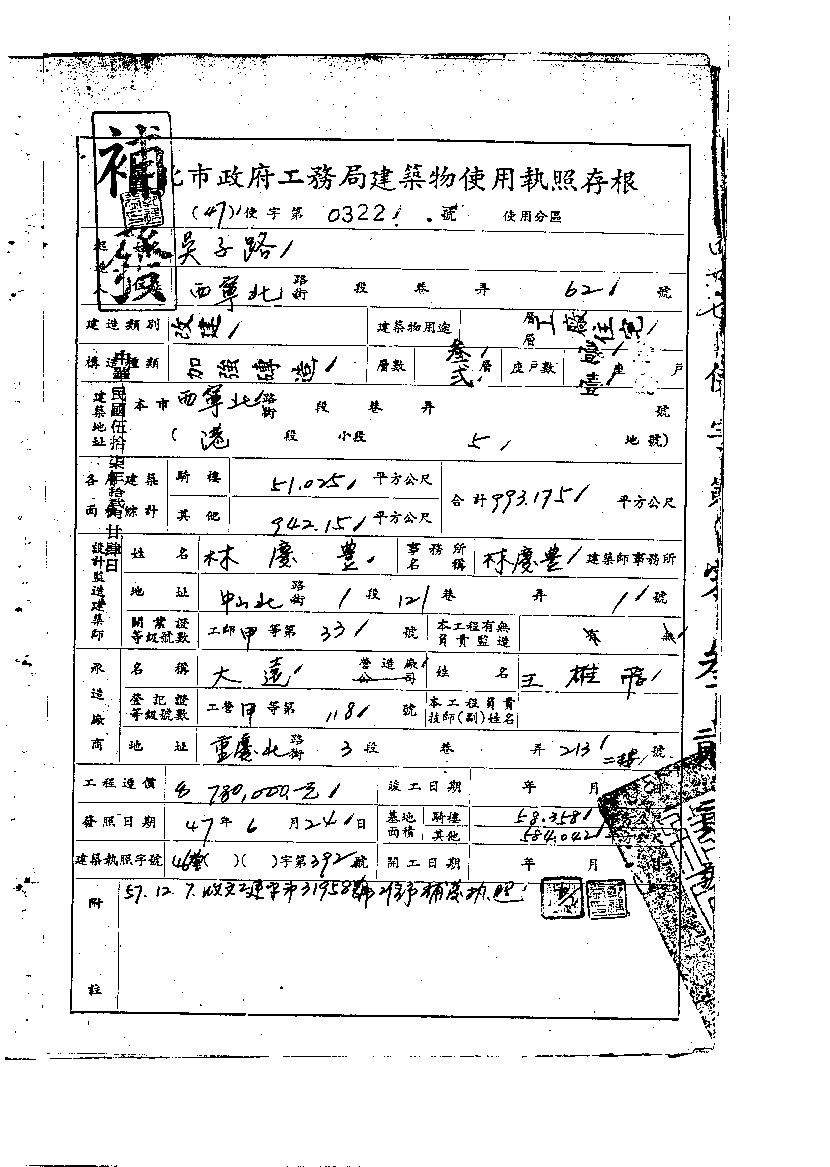 補發
北市政府工務局建築物使用執照存根
(47)使字第 0322 號 使用分區
吳子路
西寧北 路街 段 巷 弄 62 號
建造類別 改建 建築物用途 層層 工廠住宅
構造種類 加強磚造 層數 叁弍 層 座戶數 壹 座 戶
中華民國伍拾柒年拾貳月廿肆日
建築地址 本市 西寧北 路街 段 巷 弄 號
(港 段 小段 5 地號)
各層建築面積總計 騎樓 51.025 平方公尺 合計 993.175 平方公尺
其他 942.15 平方公尺
設計監造建築師 姓名 林慶豐 事務所名稱 林慶豐 建築師事務所
地址 中山北 路街 1 段 121 巷 弄 1 號
開業證等級號數 工師 甲 等第 33 號 本工程有無負責監造 有 無
承造廠商 名稱 大遠 營造廠公司 姓名 王雄
登記證等級號數 工營 甲 等第 118 號 本工程負責技師(副)姓名
地址 重慶北 路街 3 段 巷 弄 213 二樓 號
工程造價 780,000.元 竣工日期 年 月
發照日期 47 年 6 月 24 日 基地面積 騎樓 58.358
其他 584.042
建築執照字號 ( )( )字第 392 號 開工日期 年 月
附註 57.12.7.收文工建字市31958號 補發執照